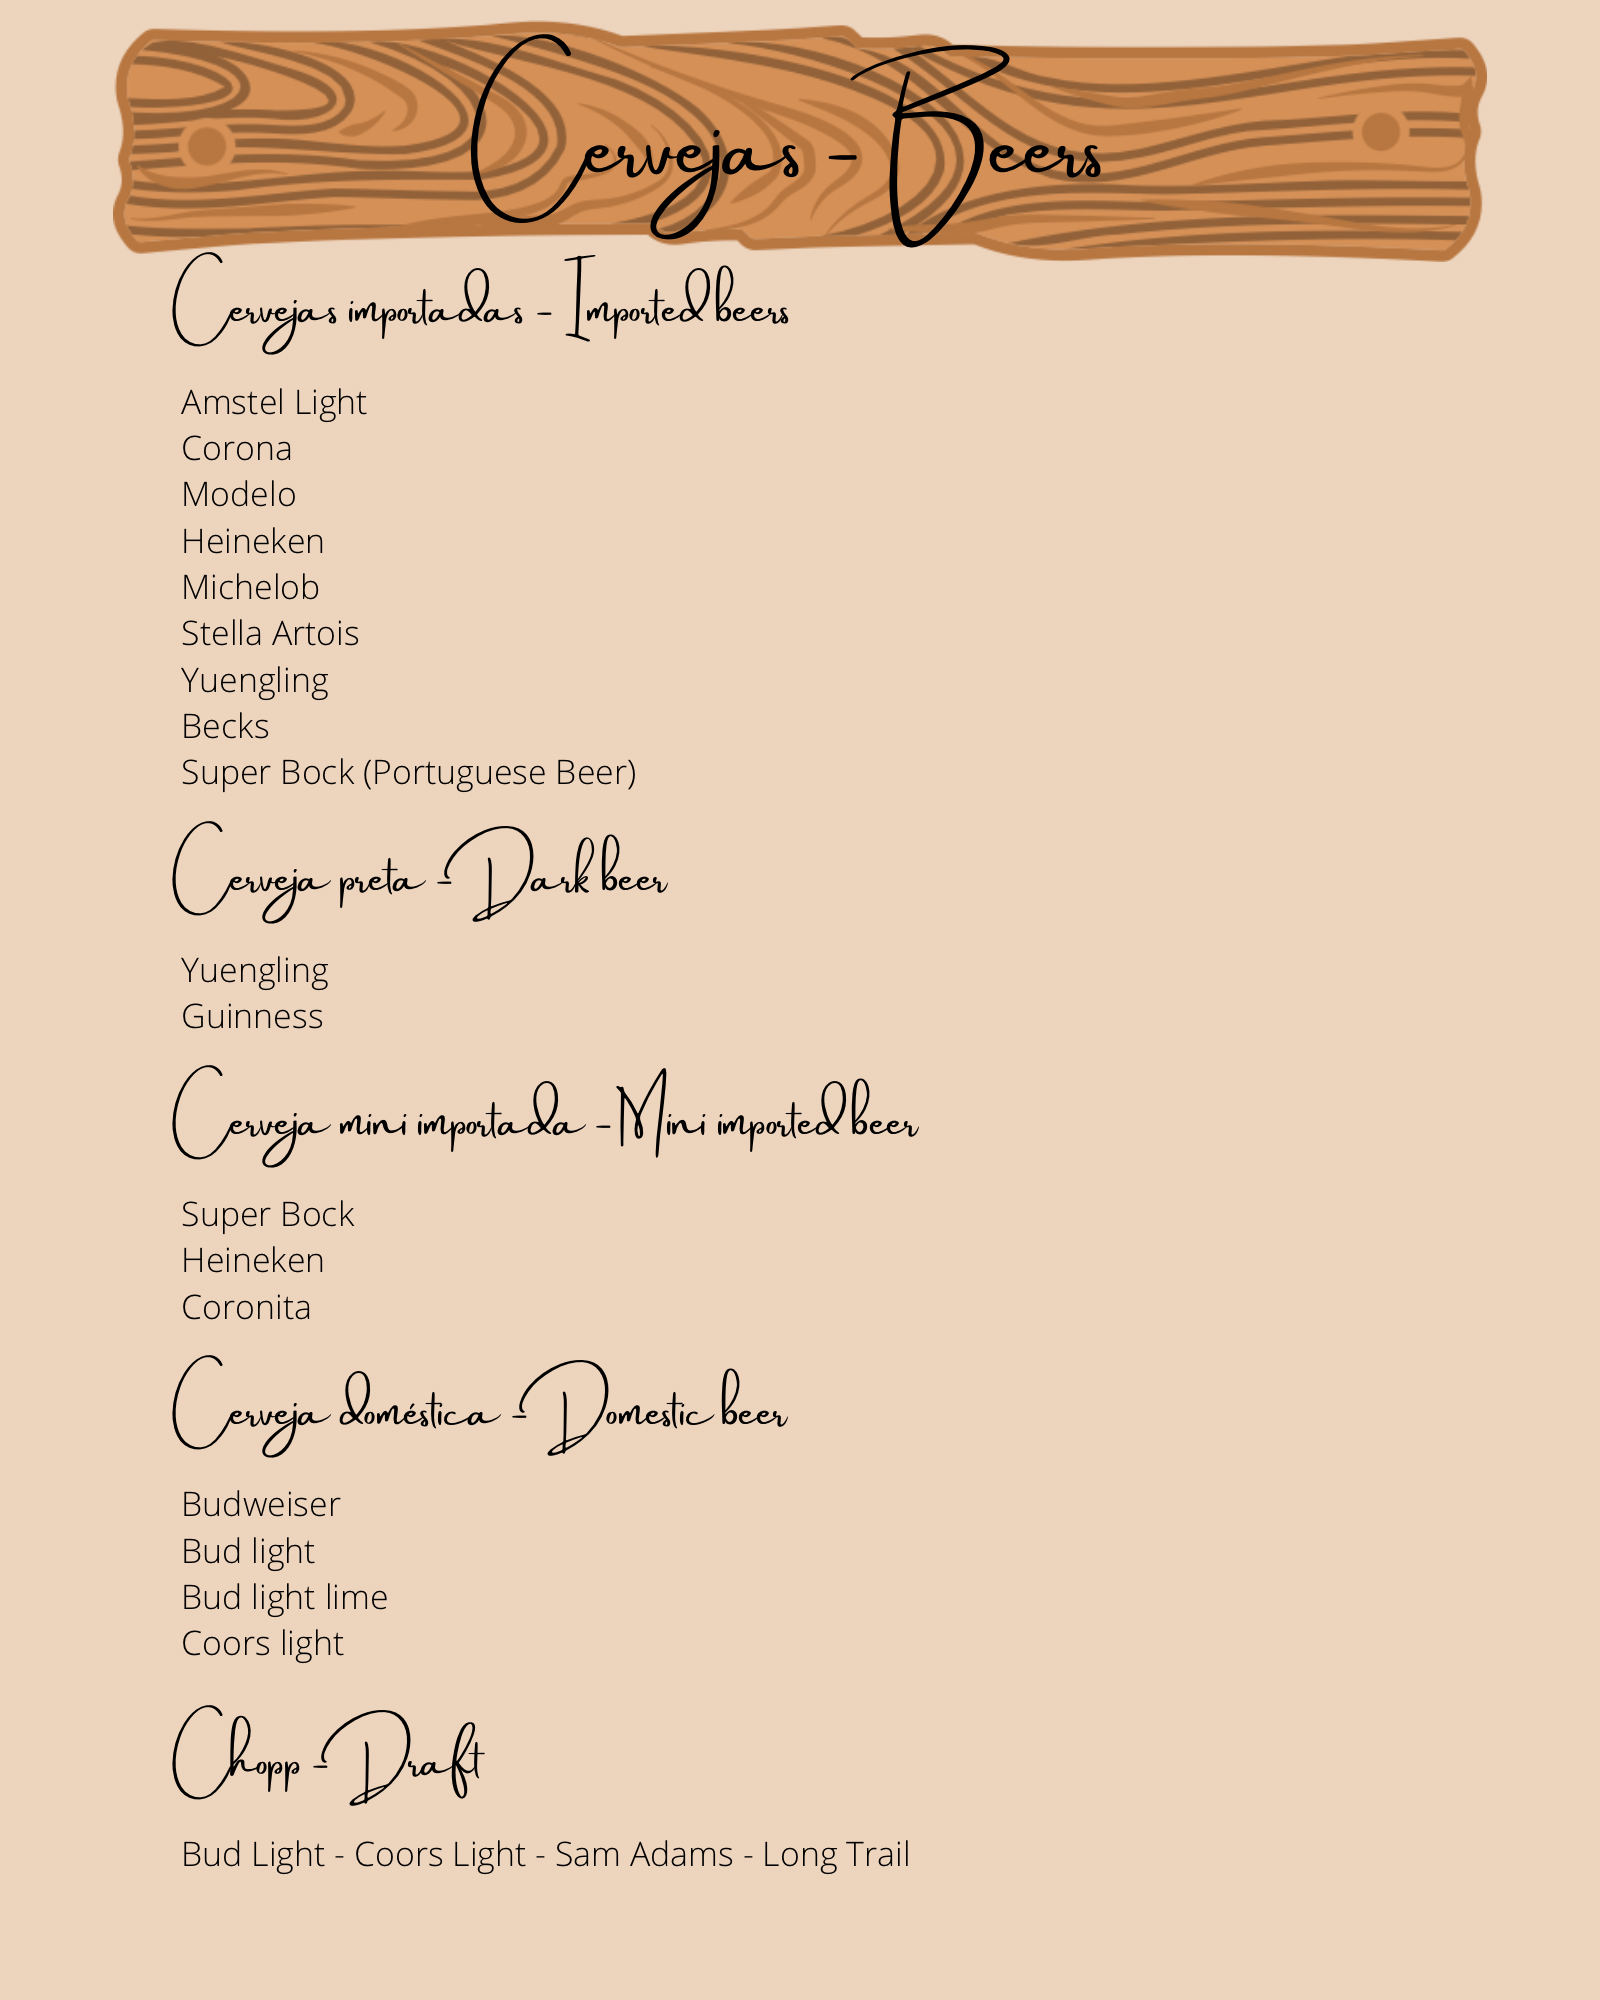 Cervejas - Beers
Cervejas importadas - Imported beers
Amstel Light
Corona
Modelo
Heineken
Michelob
Stella Artois
Yuengling
Becks
Super Bock (Portuguese Beer)
Cerveja preta - Dark beer
Yuengling
Guinness
Cerveja mini importada - Mini imported beer
Super Bock
Heineken
Coronita
Cerveja doméstica - Domestic beer
Budweiser
Bud light
Bud light lime
Coors light
Chopp - Draft
Bud Light - Coors Light - Sam Adams - Long Trail